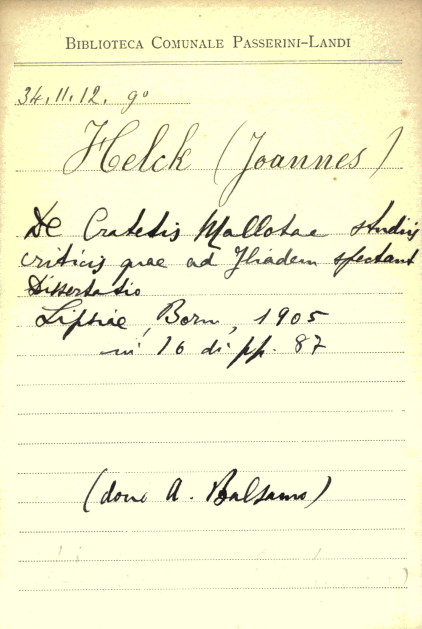 BIBLIOTECA COMUNALE PASSERINI-LANDI
34.11.12. 9º
Helck (Joannes)
De Cratetis Mallotae studiis
criticis quae ad Iliadem spectant
Dissertatio
Lipsiae, Born, 1905
in 16 di pp. 87
(dono A. Balsamo)